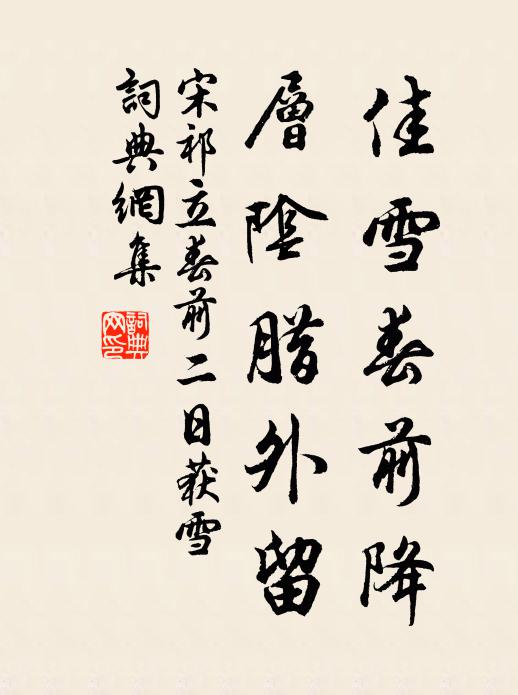 佳雪春前降
層陰腊外留
宋祁立春前二日获雪
詞典網集
詞典网印